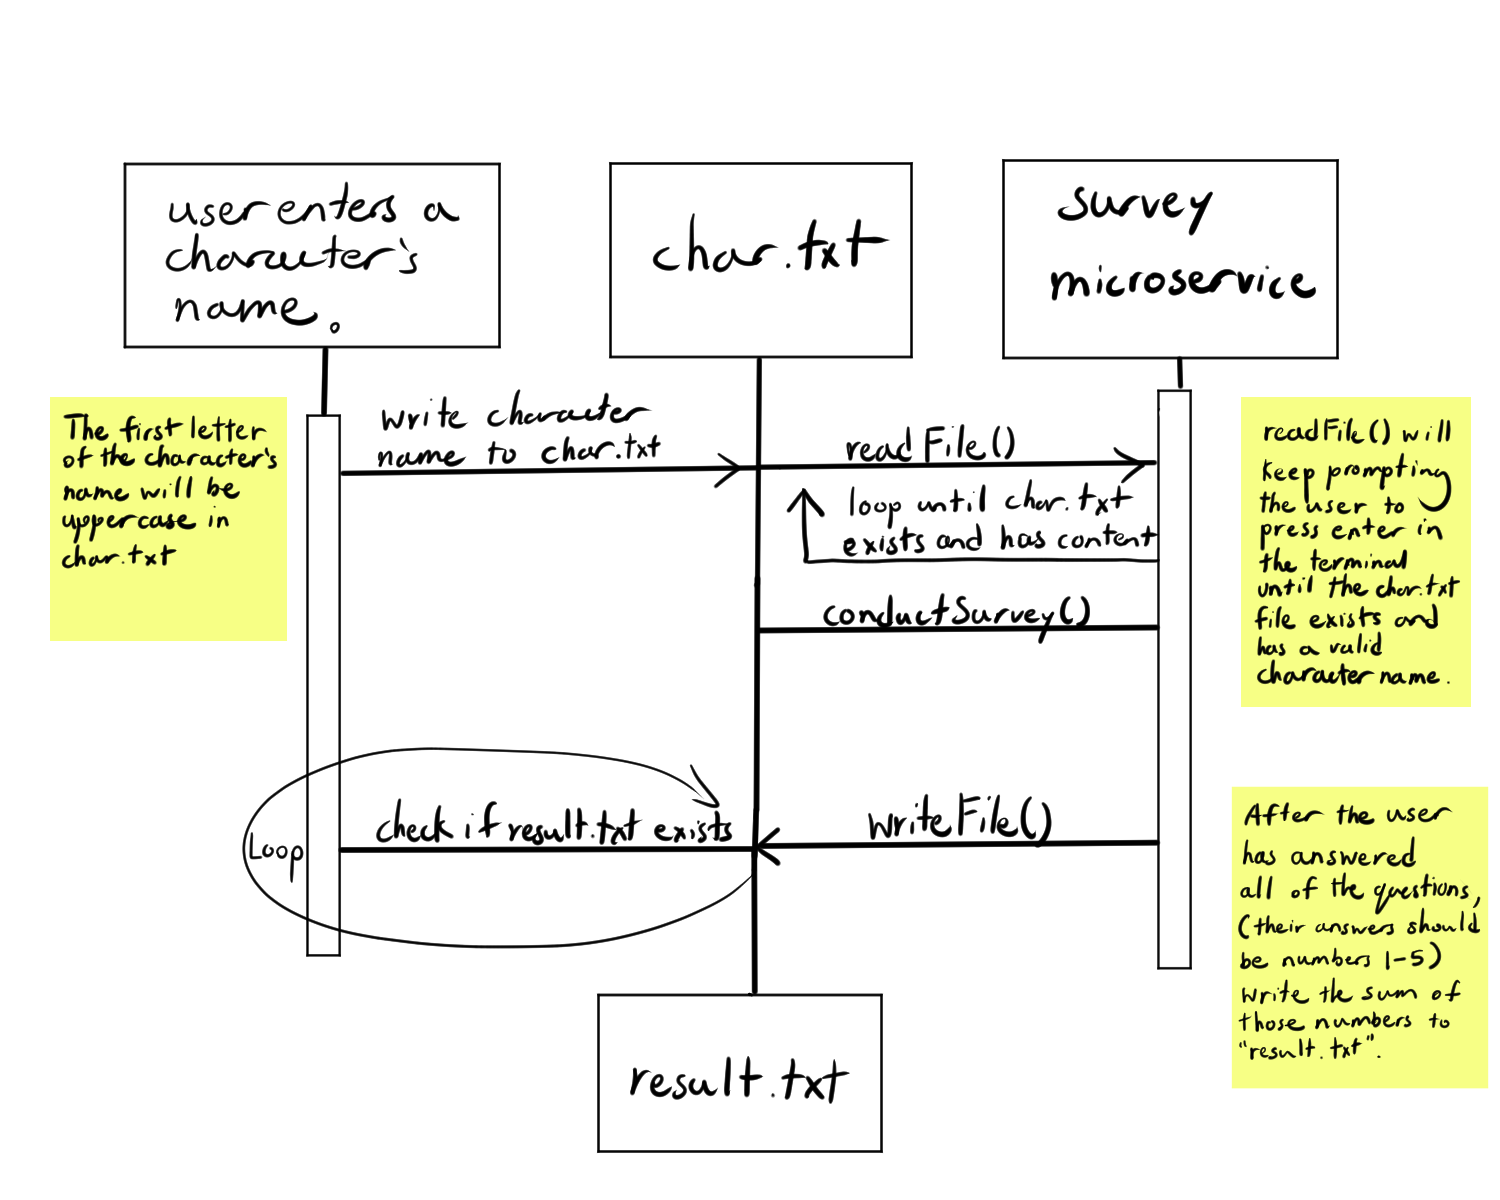 user enters a
character's
name.
char.txt
survey
microservice
The first letter
of the character's
name will be
uppercase in
char.txt
write character
name to char.txt
readFile()
loop until char.txt
exists and has content
conductSurvey()
readFile() will
keep prompting
the user to
press enter in
the terminal
until the char.txt
file exists and
has a valid
character name.
Loop
check if result.txt exists
writeFile()
After the user
has answered
all of the questions,
(their answers should
be numbers 1-5)
write the sum of
those numbers to
"result.txt".
result.txt